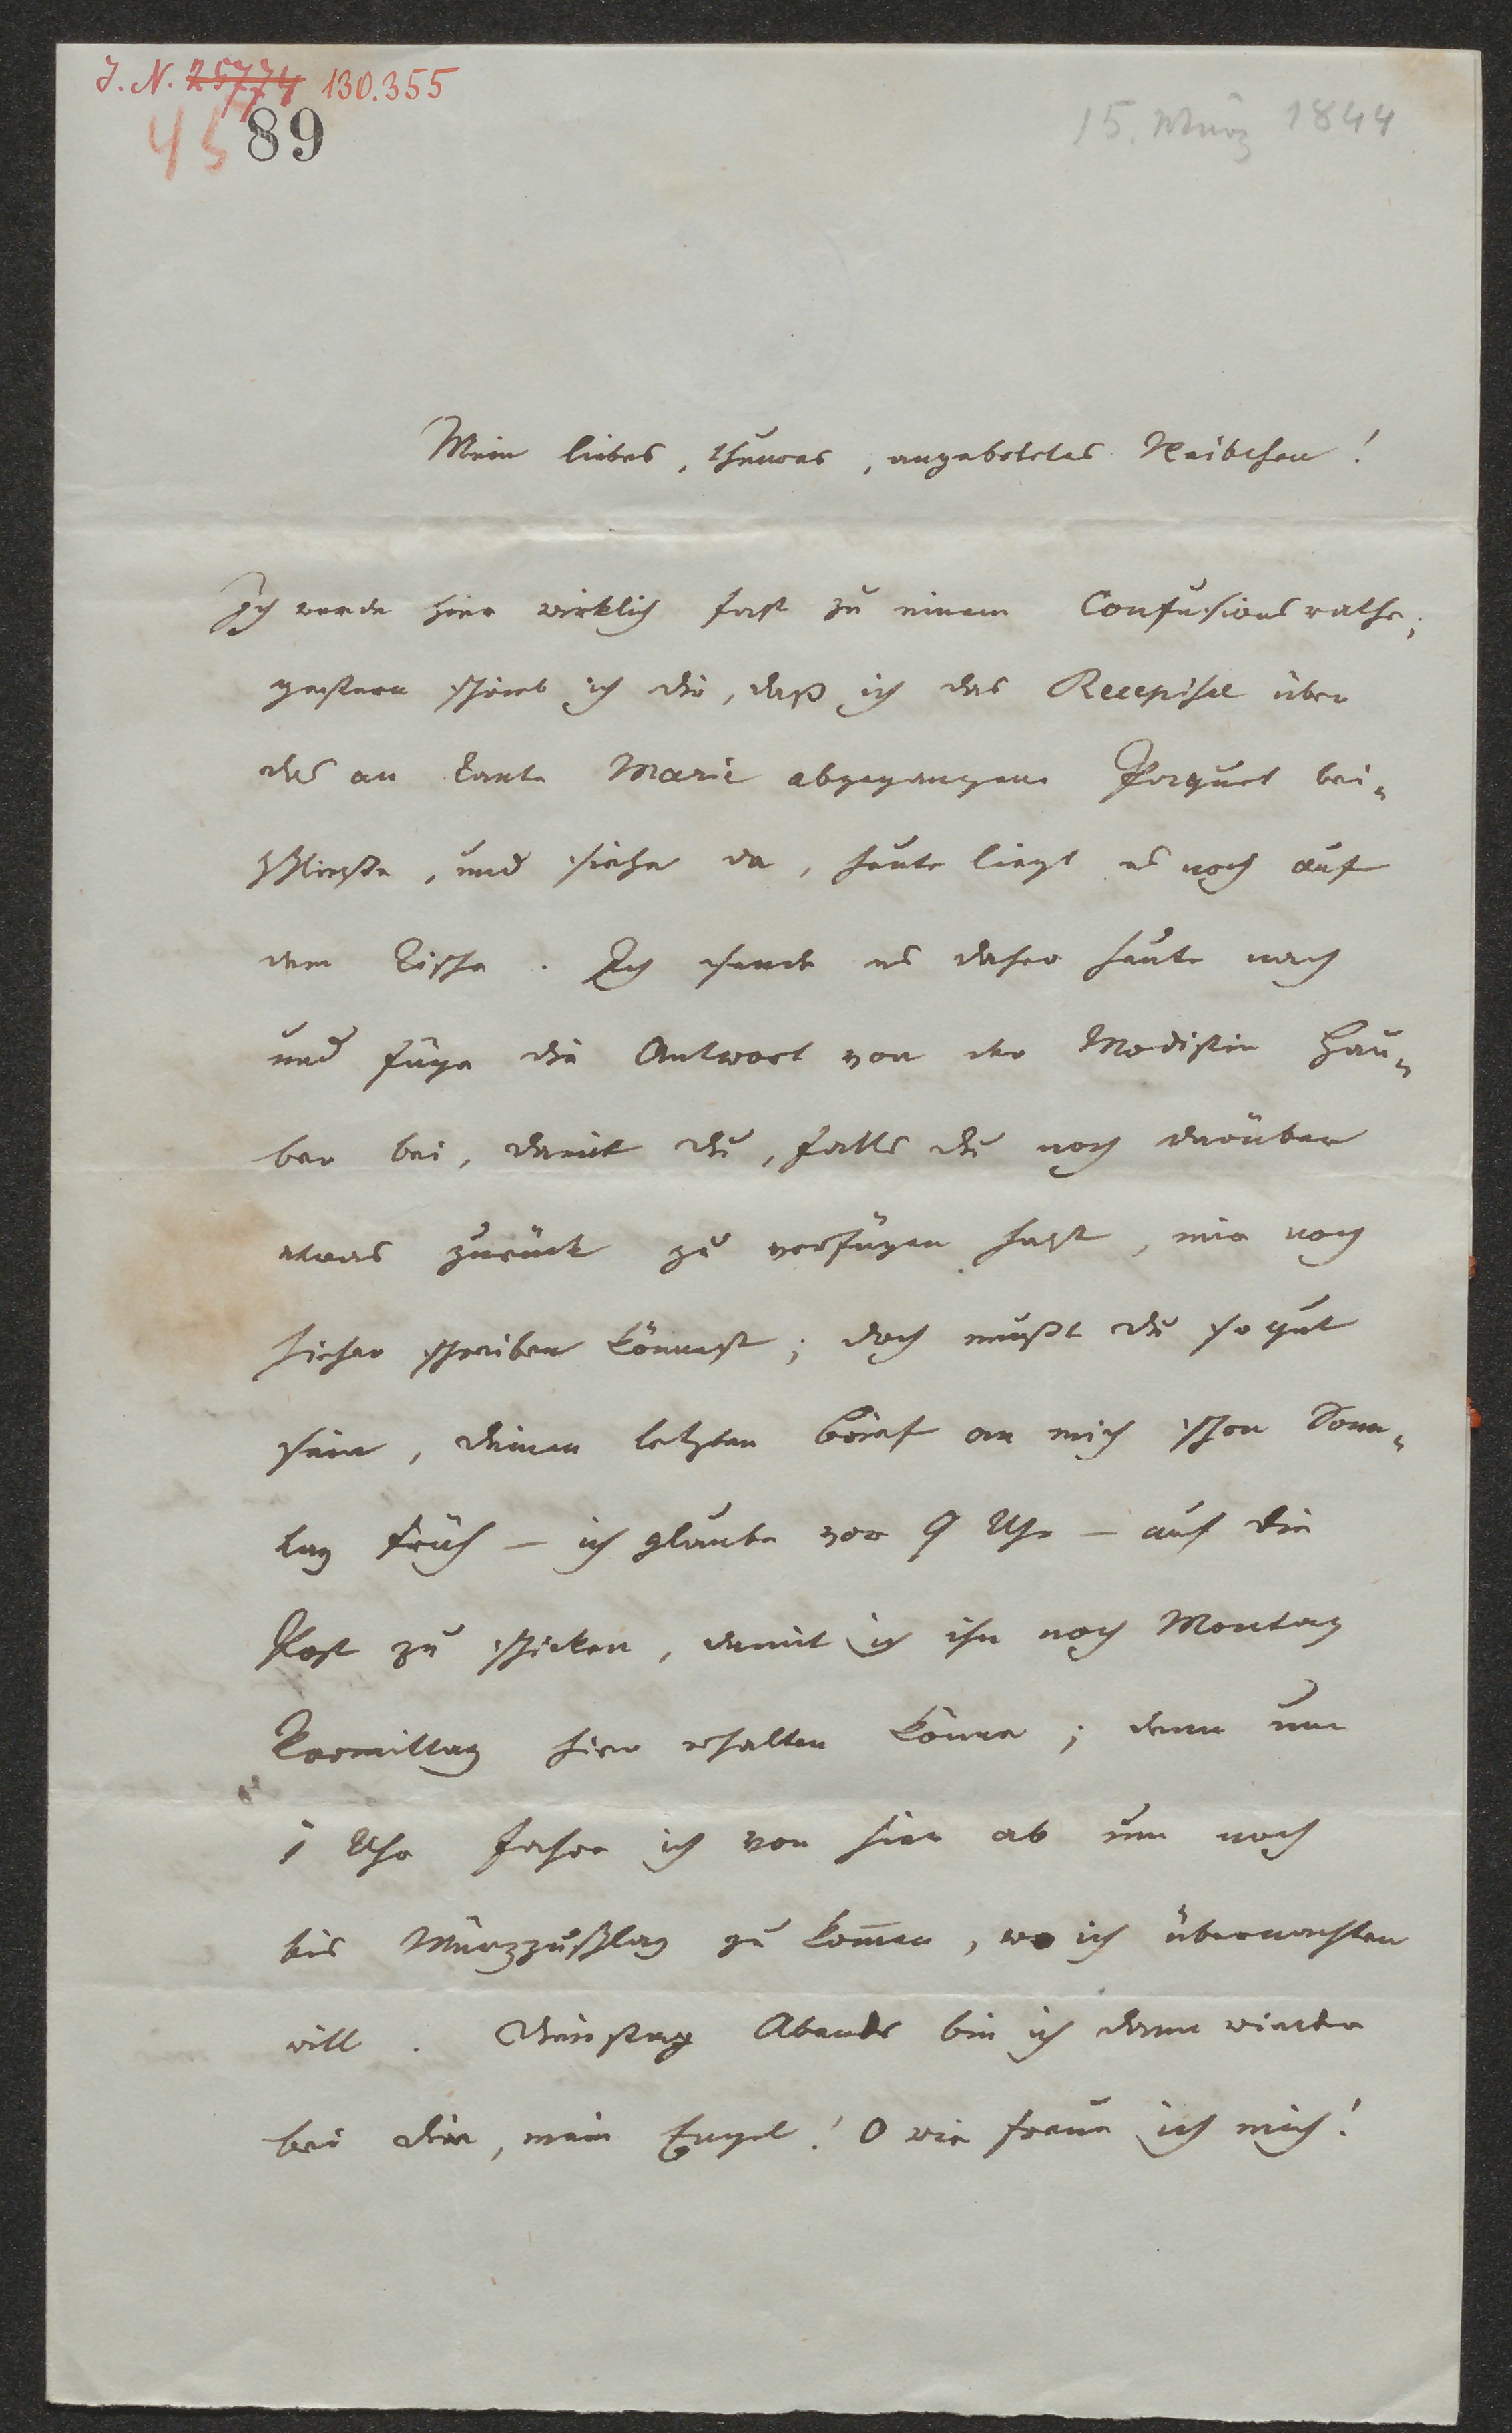 J. N. 25774 130.355
45 89
15. März 1844
Mein liebes, theures, angebetetes Weibchen!
Ich werde hier wirklich fast zu einem Confusionsrathe;
gestern schrieb ich dir, daß ich das Recepisse über
das an Tante Marie abgegangene Paquet bei-
schließe, und siehe da, heute liegt es noch auf
dem Tische. Ich sende es daher heute nach
und füge die Antwort von der Modistin Hau-
ber bei, damit du, falls du noch darüber
etwas zurück zu verfügen hast, mir noch
hieher schreiben könnest; doch mußt du so gut
sein, deinen letzten Brief an mich schon Sonn-
tag früh – ich glaube vor 9 Uhr – auf die
Post zu schicken, damit ich ihn noch Montag
Vormittag hier erhalten könne; denn um
1 Uhr fahre ich von hier ab um noch
bis Mürzzuschlag zu kom̄en, wo ich übernachten
will. Dienstag Abends bin ich dann wieder
bei dir, mein Engel! O wie freue ich mich!